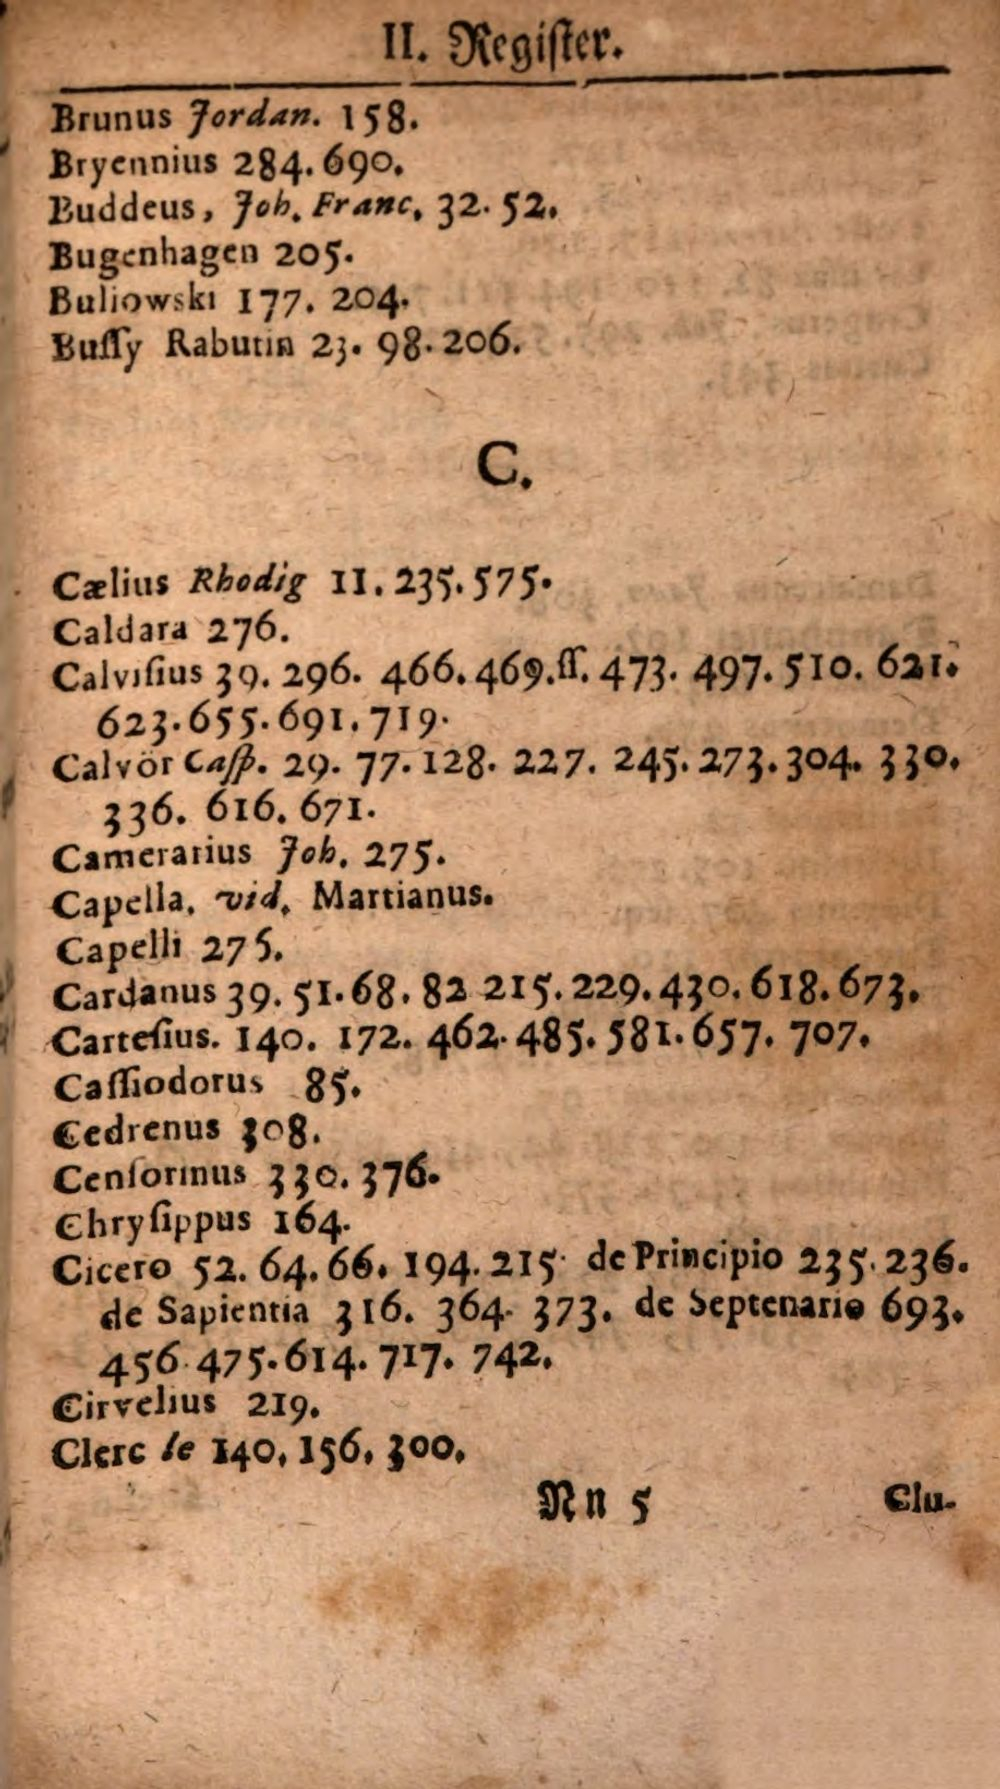 II. Regiſter.
Brunus Jordan. 158.
Bryennius 284. 690.
Buddeus, Joh. Franc. 32. 52.
Bugenhagen 205.
Buliowski 177. 204.
Buſſy Rabutin 23. 98. 206.
C.
Cælius Rhodig 11. 235. 575.
Caldara 276.
Calviſius 39. 296. 466. 469. ſſ. 473. 497. 510. 621.
623. 655. 691. 719.
Calvör Caſp. 29. 77. 128. 227. 245. 273. 304. 330.
336. 616. 671.
Camerarius Joh. 275.
Capella. vid. Martianus.
Capelli 275.
Cardanus 39. 51. 68. 82 215. 229. 430. 618. 673.
Carteſius. 140. 172. 462. 485. 581. 657. 707.
Caſſiodorus 85.
Cedrenus 308.
Cenſorinus 330. 376.
Chryſippus 164.
Cicero 52. 64. 66. 194. 215. de Principio 235. 236.
de Sapientia 316. 364. 373. de Septenario 693.
456. 475. 614. 717. 742.
Cirvelius 219.
Clerc le 140. 156. 300.
Nn 5 Clu-